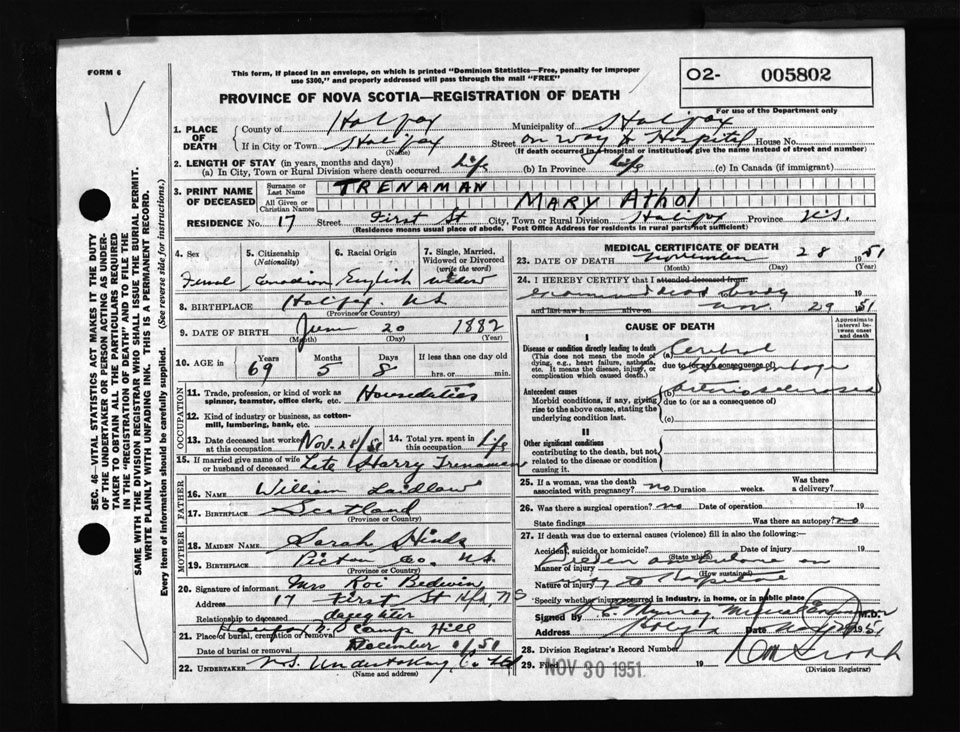 FORM 6
This form, if placed in an envelope, on which is printed "Dominion Statistics—Free, penalty for improper
use $300," and properly addressed will pass through the mail "FREE"
O2- 005802
For use of the Department only
PROVINCE OF NOVA SCOTIA—REGISTRATION OF DEATH
1. PLACE OF DEATH
County of Halifax Municipality of Halifax
If in City or Town Halifax Street on way to Hospital House No.
(Name) (If death occurred in a hospital or institution, give the name instead of street and number)
2. LENGTH OF STAY (in years, months and days)
(a) In City, Town or Rural Division where death occurred Life (b) In Province Life (c) In Canada (if immigrant)
3. PRINT NAME OF DECEASED
Surname or Last Name TRENAMAN
All Given or Christian Names MARY Athol
RESIDENCE No. 17 Street First St City, Town or Rural Division Halifax Province N.S.
(Residence means usual place of abode. Post Office Address for residents in rural parts not sufficient)
4. Sex 5. Citizenship (Nationality) 6. Racial Origin 7. Single, Married, Widowed or Divorced (write the word)
Femal Canadian English widow
8. BIRTHPLACE Halifax. N.S.
(Province or Country)
9. DATE OF BIRTH June 20 1882
(Month) (Day) (Year)
10. AGE IN Years Months Days If less than one day old
69 5 8 hrs. or min.
OCCUPATION
11. Trade, profession, or kind of work as spinner, teamster, office clerk, etc. Houseduties
12. Kind of industry or business, as cotton-mill, lumbering, bank, etc.
13. Date deceased last worked at this occupation Nov. 28/51 14. Total yrs. spent in this occupation Life
15. If married give name of wife or husband of deceased Late Harry Trenaman
FATHER
16. Name William Laidlaw
17. BIRTHPLACE Scotland
MOTHER
18. MAIDEN NAME Sarah Hinds
19. BIRTHPLACE Pictou Co. N.S.
(Province or Country)
20. Signature of informant Mrs Roi Bedwin
Address 17 First St Hfx, N S
Relationship to deceased daughter
21. Place of burial, cremation or removal Halifax Camp Hill
Date of burial or removal December 1/51
22. UNDERTAKER N.S. Undertaking Co Ltd
(Name and address)
MEDICAL CERTIFICATE OF DEATH
23. DATE OF DEATH November 28 1951
(Month) (Day) (Year)
24. I HEREBY CERTIFY that I attended deceased from:
examined dead body 19
and last saw h alive on Nov. 29 1951
CAUSE OF DEATH
Approximate interval between onset and death
I
Disease or condition directly leading to death
(This does not mean the mode of dying, e.g., heart failure, asthenia, etc. It means the disease, injury, or complication which caused death.)
(a) Cerebral
due to (or as a consequence of)
Antecedent causes
Morbid conditions, if any, giving rise to the above cause, stating the underlying condition last.
(b) Arteriosclerosis
due to (or as a consequence of)
(c)
II
Other significant conditions
contributing to the death, but not related to the disease or condition causing it.
25. If a woman, was the death associated with pregnancy? no Duration weeks. Was there a delivery?
26. Was there a surgical operation? no Date of operation 19
State findings Was there an autopsy? no
27. If death was due to external causes (violence) fill in also the following:
Accident, suicide or homicide? Date of injury 19
(State which)
Manner of injury
(How sustained)
Nature of injury way to Hospital
Specify whether injury occurred in industry, in home, or in public place
Signed by Murray Medical Examiner M.D.
Address Halifax Date Nov 29 1951
28. Division Registrar's Record Number
29. Filed NOV 30 1951. 19
(Division Registrar)
SEC. 46—VITAL STATISTICS ACT MAKES IT THE DUTY
OF THE UNDERTAKER OR PERSON ACTING AS UNDER-
TAKER TO OBTAIN ALL THE PARTICULARS REQUIRED
IN THE "REGISTRATION OF DEATH" AND TO FILE THE
SAME WITH THE DIVISION REGISTRAR WHO SHALL ISSUE THE BURIAL PERMIT.
WRITE PLAINLY WITH UNFADING INK. THIS IS A PERMANENT RECORD.
Every item of information should be carefully supplied. (See reverse side for instructions.)